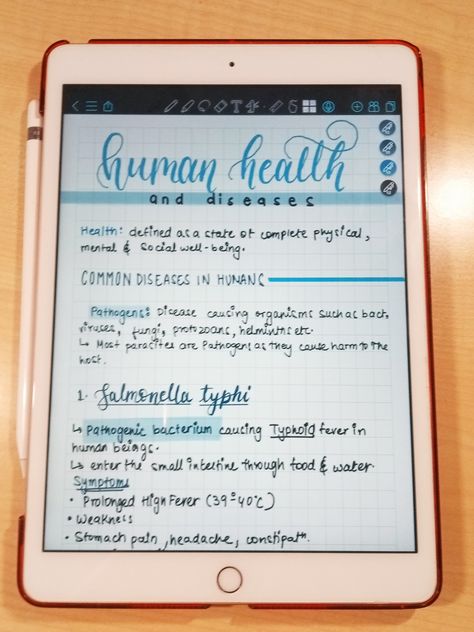 human health
and diseases
Health: defined as a state of complete physical,
mental & social well-being.
COMMON DISEASES IN HUMANS
Pathogens: Disease causing organisms such as bact.
viruses, fungi, protozoans, helminths etc.
↳ Most paracites are Pathogens as they cause harm to the
host.
1. Salmonella typhi
↳ Pathogenic bacterium causing Typhoid fever in
human beings.
↳ enter the small intestine through food & water.
Symptoms
• Prolonged High Fever (39°-40°C)
• Weakness
• Stomach pain, headache, constipatn.